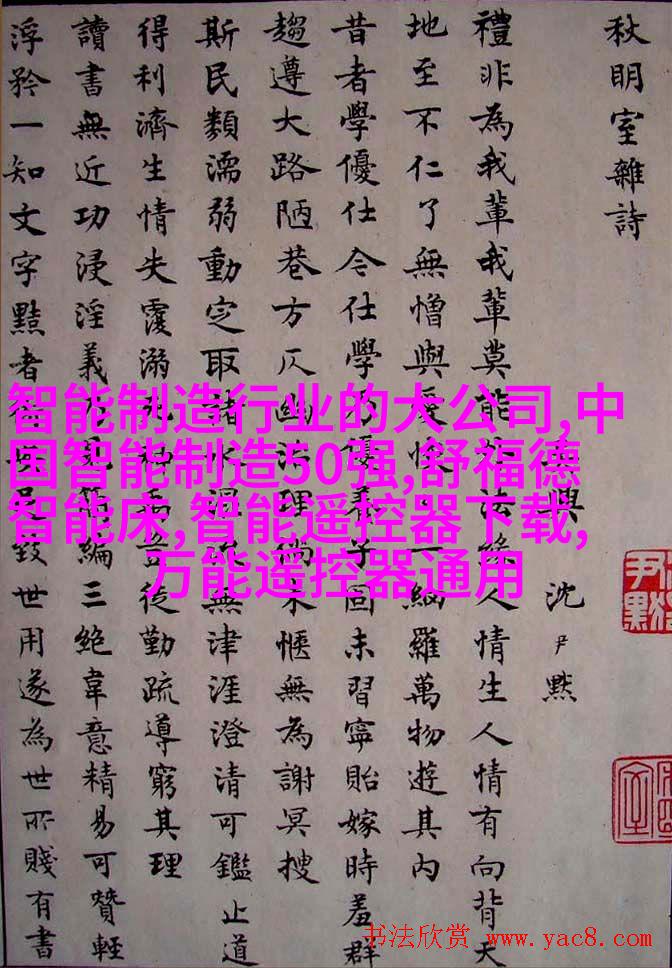 秋明室雜詩
興 沈尹默
禮非為我輩我輩莫能法緣人情生人情有向背天
地至不仁了無憎與愛恢一網羅萬物遊其內
昔者學優仕今仕學乃優養子固未習寧貽嫁時羞群
趨遵大路陋巷方仄幽治理倘不愜無為謝冥搜
斯民類濡弱動定取諸水流無津涯澄清可鑑止道
得利濟生情失覆溺死神禹豈徒勤疏導窮其理
讀書無近功浸淫義乃見編三絕韋意精易可贊輕
浮矜一知文字黠者足致世用遂為世所賤有書
智能制造行业的大公司,中
国智能制造50强,舒福德
智能床,智能遥控器下载,
万能遥控器通用
尹默
书法欣赏 www.yac8.com